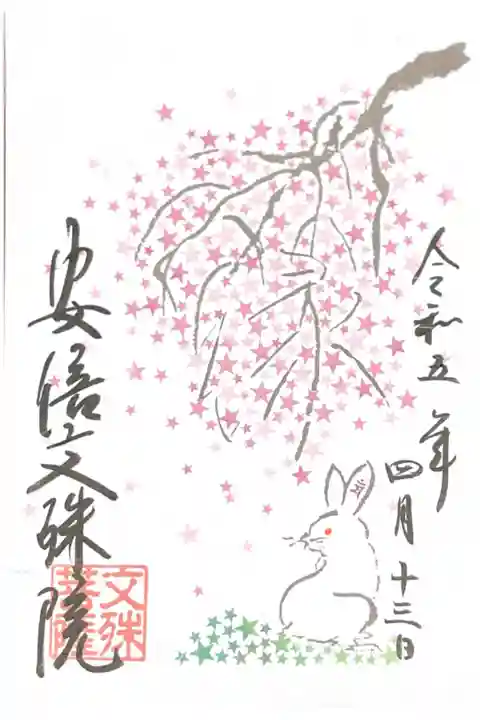 令和五年
四月十三日
縁
安倍文殊院
文殊
菩薩